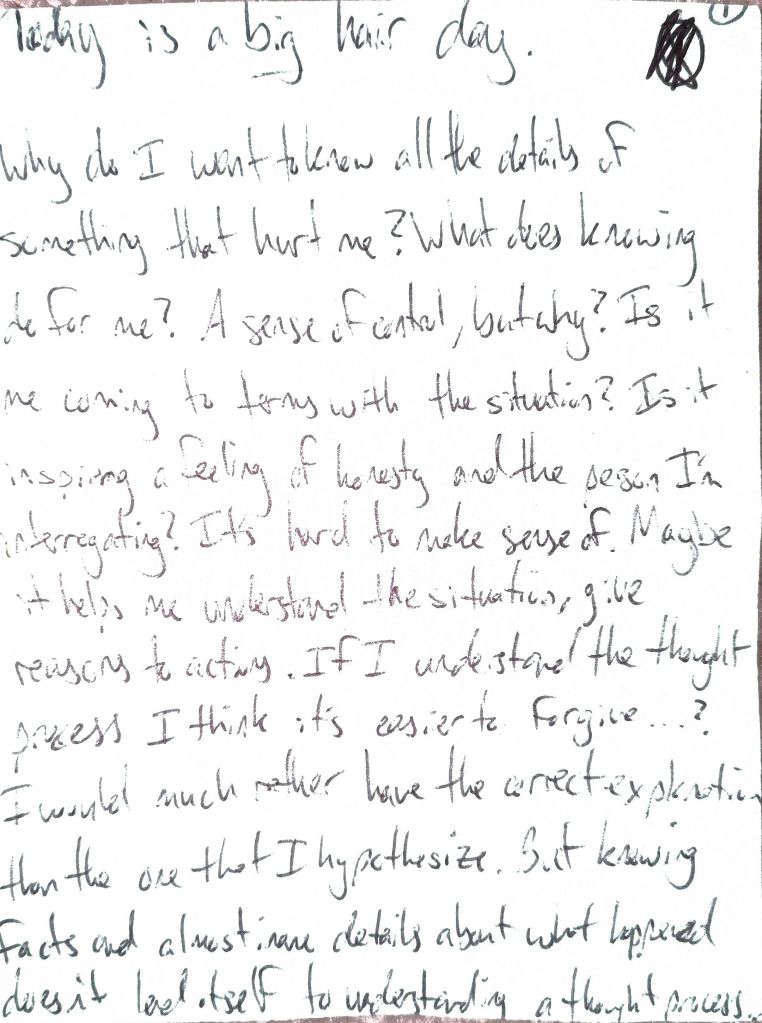 ①
Today is a big hair day.
Why do I want to know all the details of
something that hurt me? What does knowing
do for me? A sense of control, but why? Is it
me coming to terms with the situation? Is it
inspiring a feeling of honesty and the person I'm
interregating? It's hard to make sense of. Maybe
it helps me understand the situation, give
reasons to actions. If I understand the thought
process I think it's easier to forgive...?
I would much rather have the correct explanation
than the one that I hypothesize. But knowing
facts and almost inane details about what happened
doesn't lend itself to understanding a thought process...